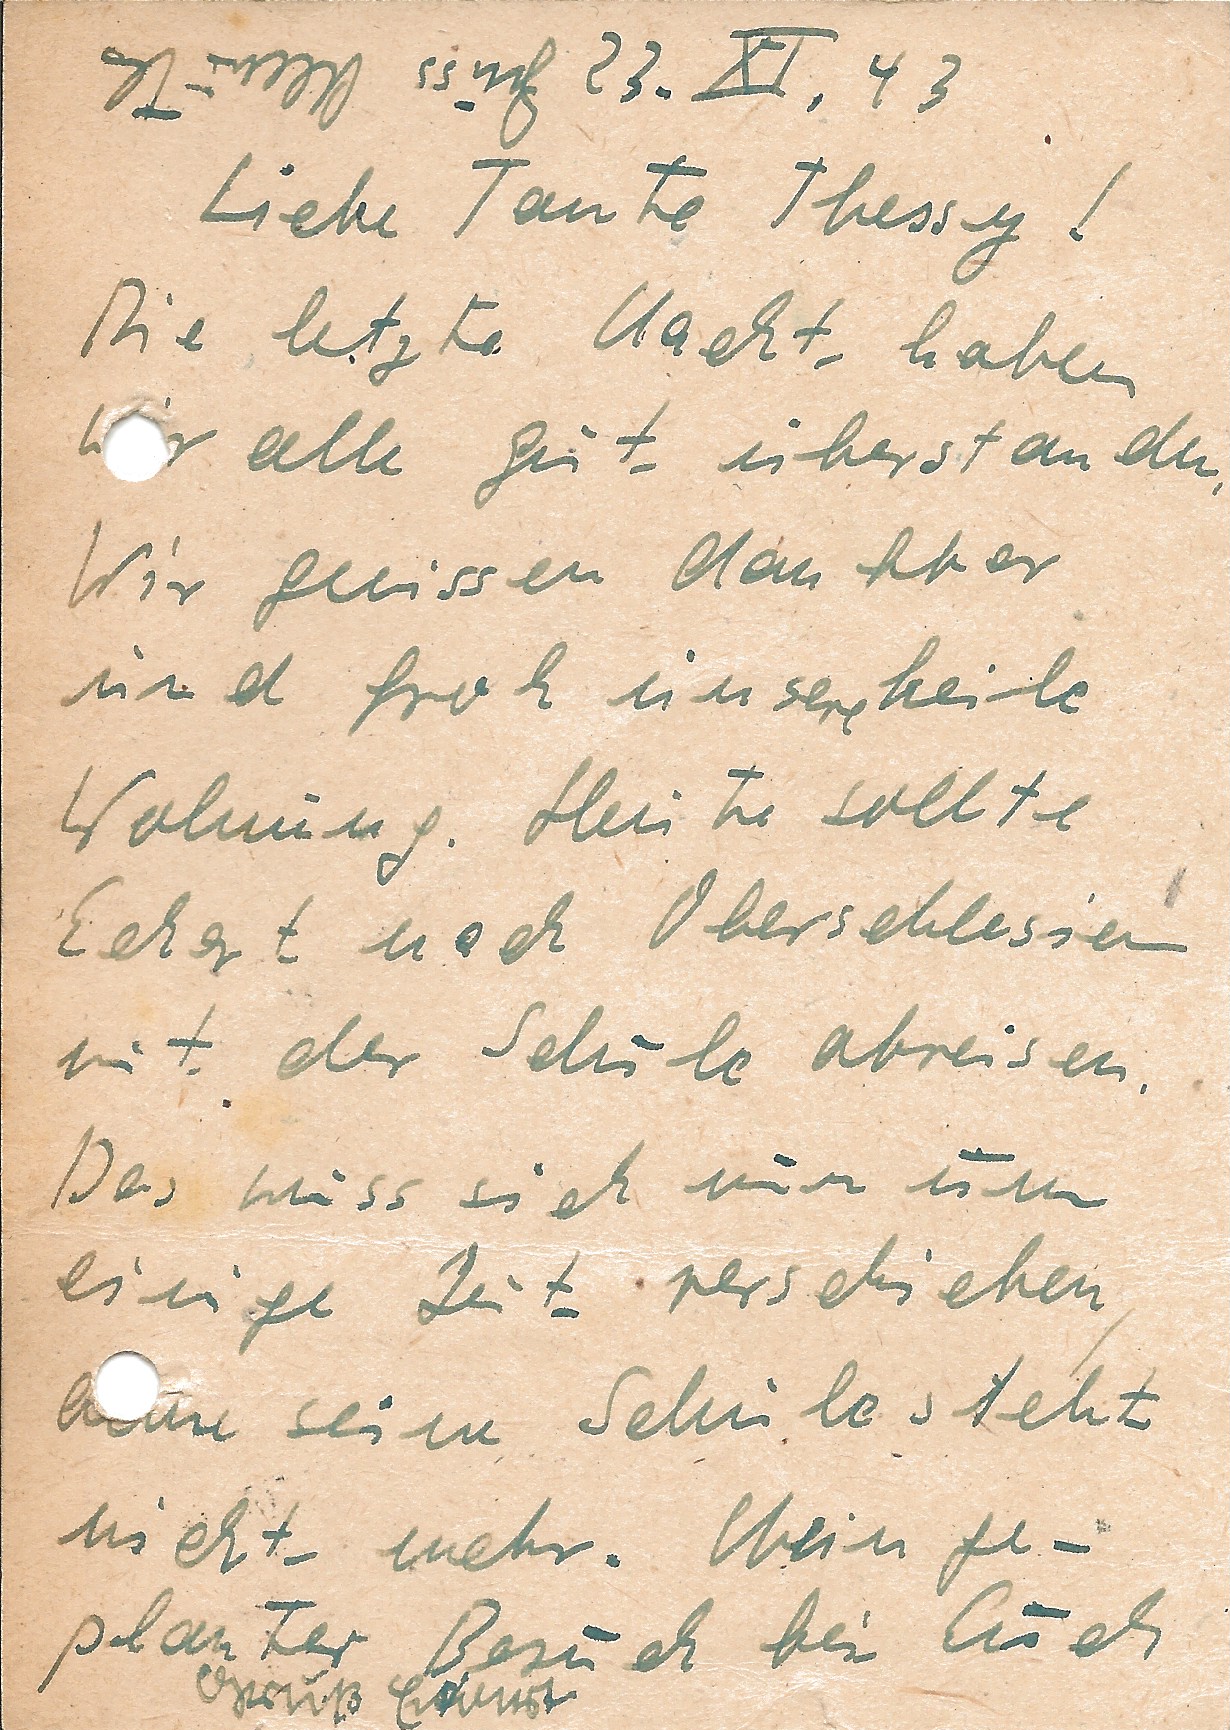 Gruss
23. XI. 43
Liebe Tante Thessy!
Die letzte Nacht haben
wir alle gut überstanden.
Wir geniessen dankbar
und froh unsere heile
Wohnung. Heute sollte
Eckart nach Oberschlesien
mit der Schule abreisen.
Das muss sich nun um
einige Zeit verschieben,
denn seine Schule steht
nicht mehr. Mein ge-
planter Besuch bei Euch
Gruß